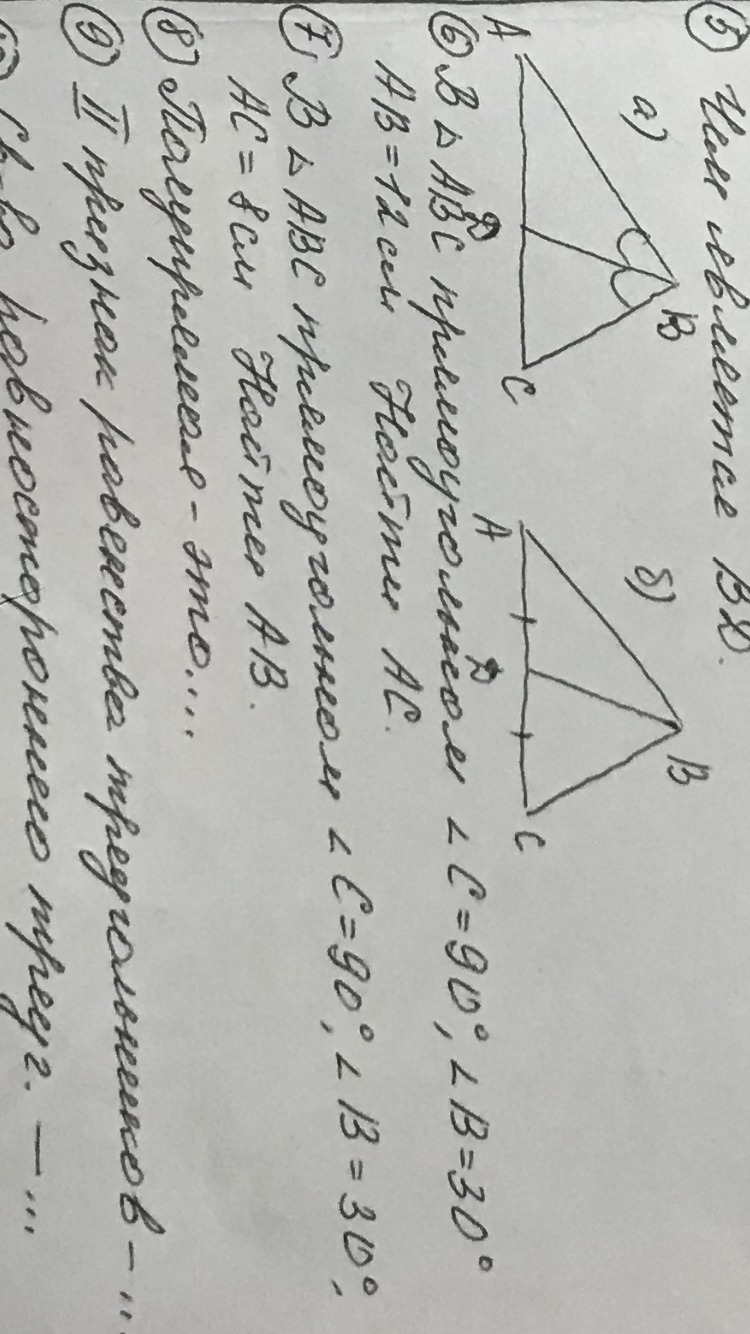 5 Чем является BD.
а) б)
A B C D
A B C D
6 В △ ABC прямоугольном ∠C=90°, ∠B=30°
AB=12см Найти AC.
7 В △ ABC прямоугольном ∠C=90°, ∠B=30°,
AC=8см Найти AB.
8 Полупрямая - это....
9 II признак равенства треугольников - ...
10 Св-во равностороннего треуг. — ...